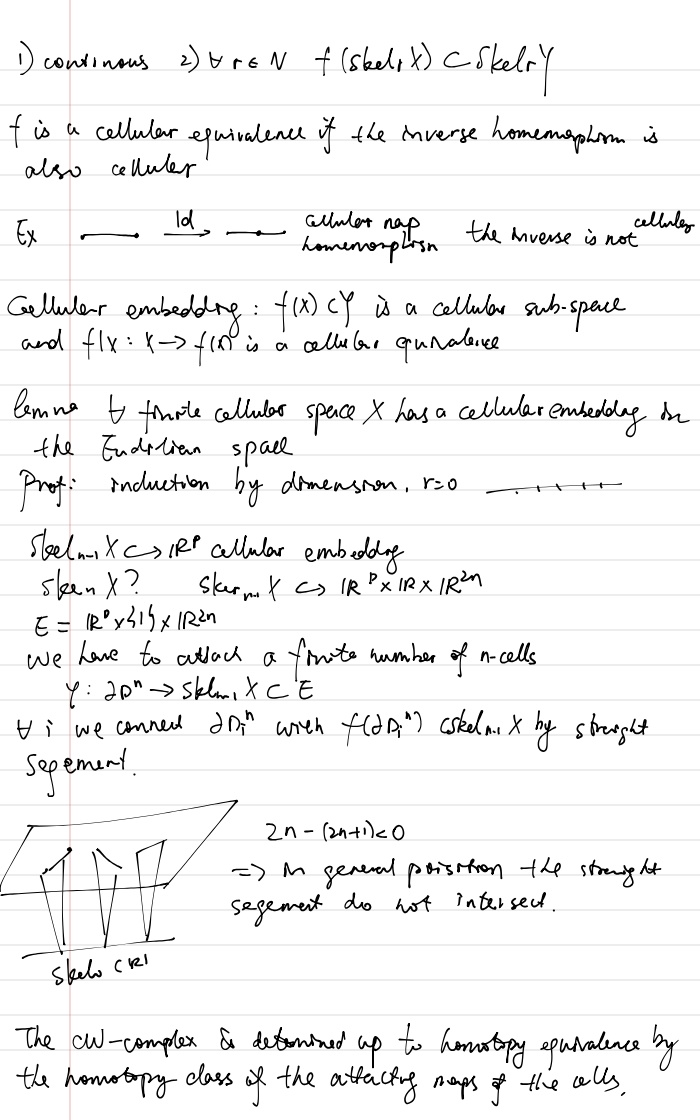 1) continous 2) ∀ r ∈ N f(skelr X) ⊂ skelr Y
f is a cellular equivalence if the inverse homemorphism is
also cellular
Ex Id cellular map the inverse is not cellular
homemorphism
Cellular embeddng : f(X) ⊂ Y is a cellular sub-space
and f|x : X → f(X) is a cellular equivalence
lemma ∀ finite cellular space X has a cellular embeddng in
the Euclidian space
Proof: induction by dimension, r=0
Skel n-1 X ↪ ℝᴾ cellular embeddng
Skel n X? Skel n-1 X ↪ ℝᴾ × ℝ × ℝ²ⁿ
E = ℝᴾ × {1} × ℝ²ⁿ
we have to attach a finite number of n-cells
φ : ∂Dⁿ → Skel n-1 X ⊂ E
∀ i we connect ∂Diⁿ with f(∂Diⁿ) ⊂ skel n-1 X by straight
segement.
2n - (2n+1) < 0
=> in general poisition the straight
segement do not intersect.
Skelo
The CW-complex is determined up to homotopy equivalence by
the homotopy class of the attacting maps of the cells.